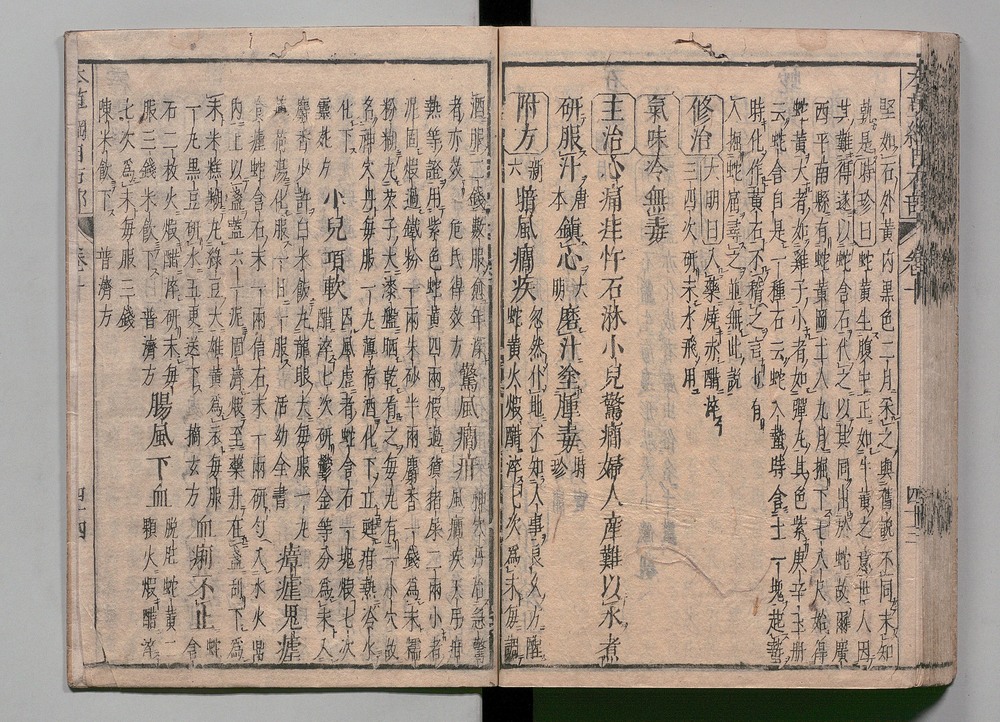 堅如石外黃內黑色二月采之與舊說不同未知
孰是時珍曰蛇黃生腹中正如牛黃之意世人因
其難得遂以蛇含石代之以其同出於蛇故爾廣
西平南縣有蛇黃岡土人九月掘下七八尺始得
蛇黃大者如雞子小者如彈丸其色紫庚辛玉冊
云蛇含自是一種石云蛇入蟄時含土一塊起蟄
時化作黃石不稽之言也有
人掘蛇窟尋之並無此說
修治 大明曰入藥燒赤醋淬
三四次研末水飛用
氣味冷無毒
主治心痛疰忤石淋小兒驚癇婦人產難以水煮
研服汁 唐本 鎮心 大明 磨汁塗腫毒 時珍
附方 新六 暗風癇疾 忽然仆地不知人事良久方醒
蛇黃火煅醋淬七次為末每調
酒服二錢數服愈年深
者亦效危氏得效方 驚風癇疳 神穴丹治急驚
風癇疾天吊疳
熱等證用紫色蛇黃四兩煅過猳豬屎二兩小者
泥固煅過鐵粉一兩朱砂半兩麝香一錢為末糯
粉糊丸芡子大漆盤晒乾看之每丸有一小穴故
名神穴丹每服一丸薄荷酒化下立甦疳熱冷水
化下 小兒項軟 因風虛者蛇含石一塊煅七次
醋淬七次研鬱金等分為末入
麝香少許白米飯丸龍眼大每服一丸
薄荷湯化服一日一服 活幼全書 瘴瘧鬼瘧
食瘧蛇含石末一兩信石末一兩研勻入水火鼎
內上以盞蓋六一泥固濟煅至藥升在盞刮下為
末米糕糊丸綠豆大雄黃為衣每服
一丸黑豆研水五更送下 摘玄方 血痢不止 蛇含
石二枚火煅醋淬研末每
服三錢米飲下 普濟方 腸風下血 脫肛蛇黃二
顆火煅醋淬
七次為末每服三錢
陳米飲下 普濟方
四十三
四十四